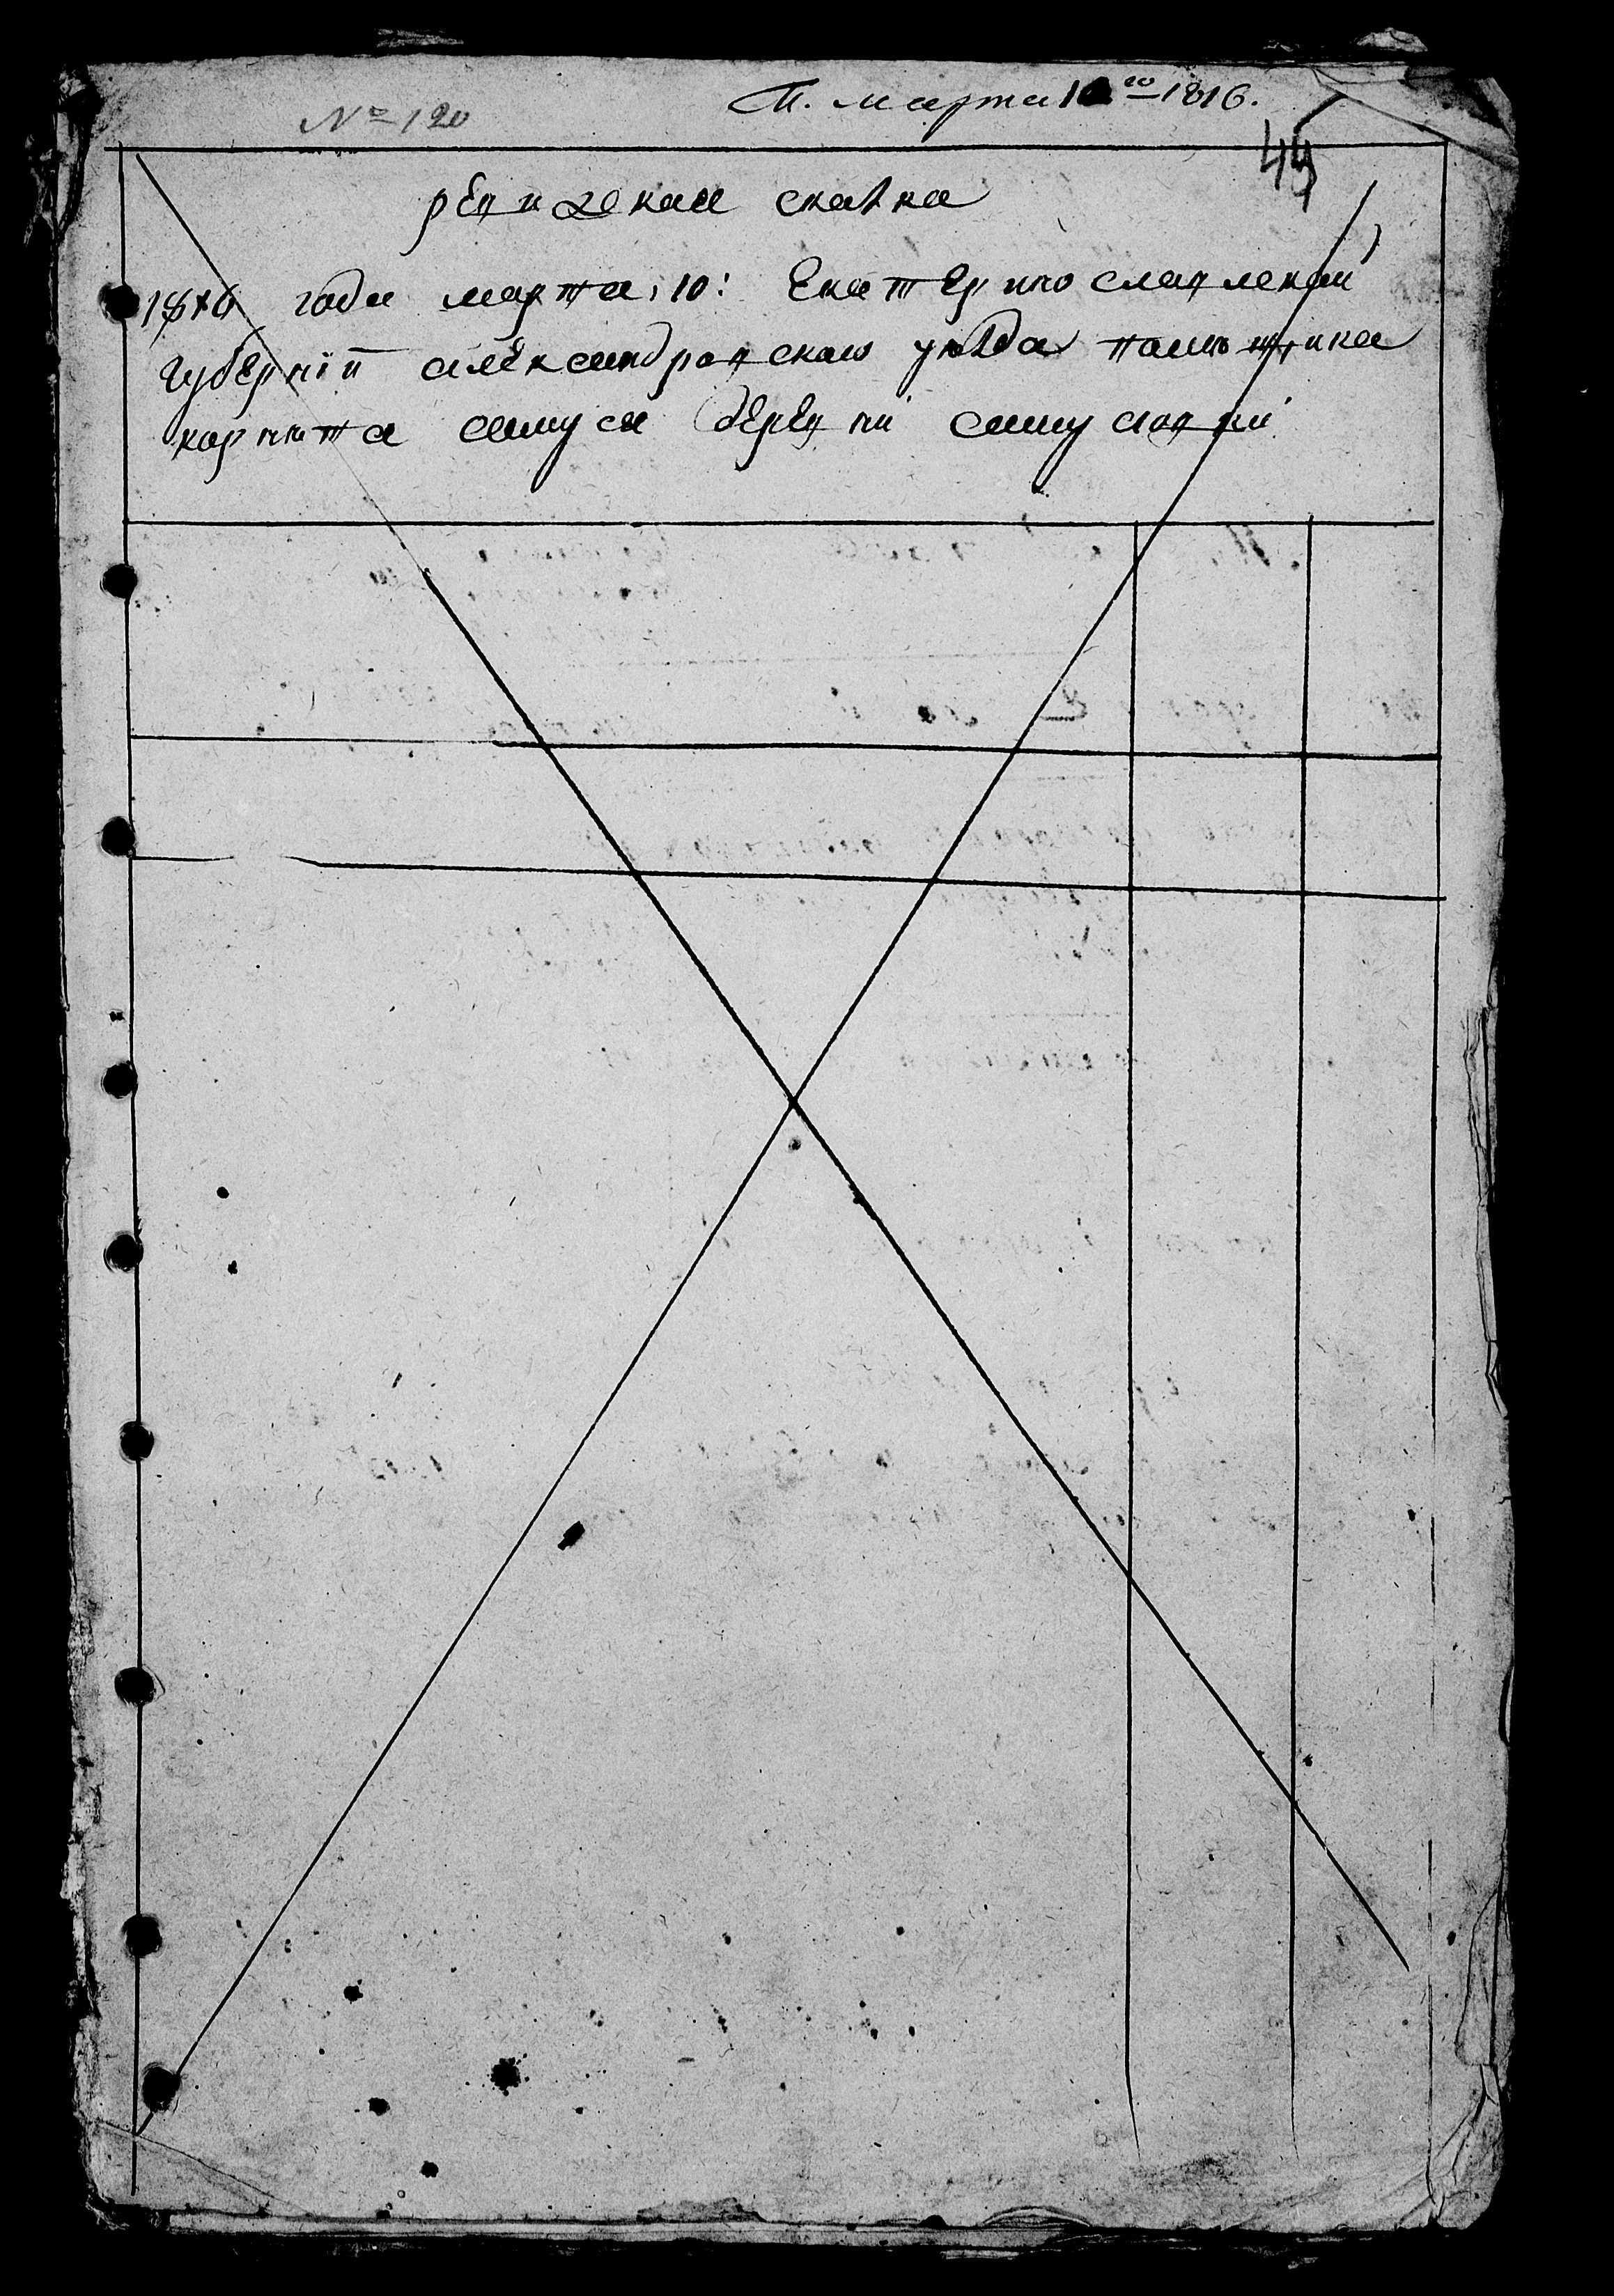 № 120
П. марта 10го 1816.
45
ревизская сказка
1816 года марта, 10: Екатеринославской
губернии александровскаго уезда помѣщика
корнѣта самуся деревни самусовки